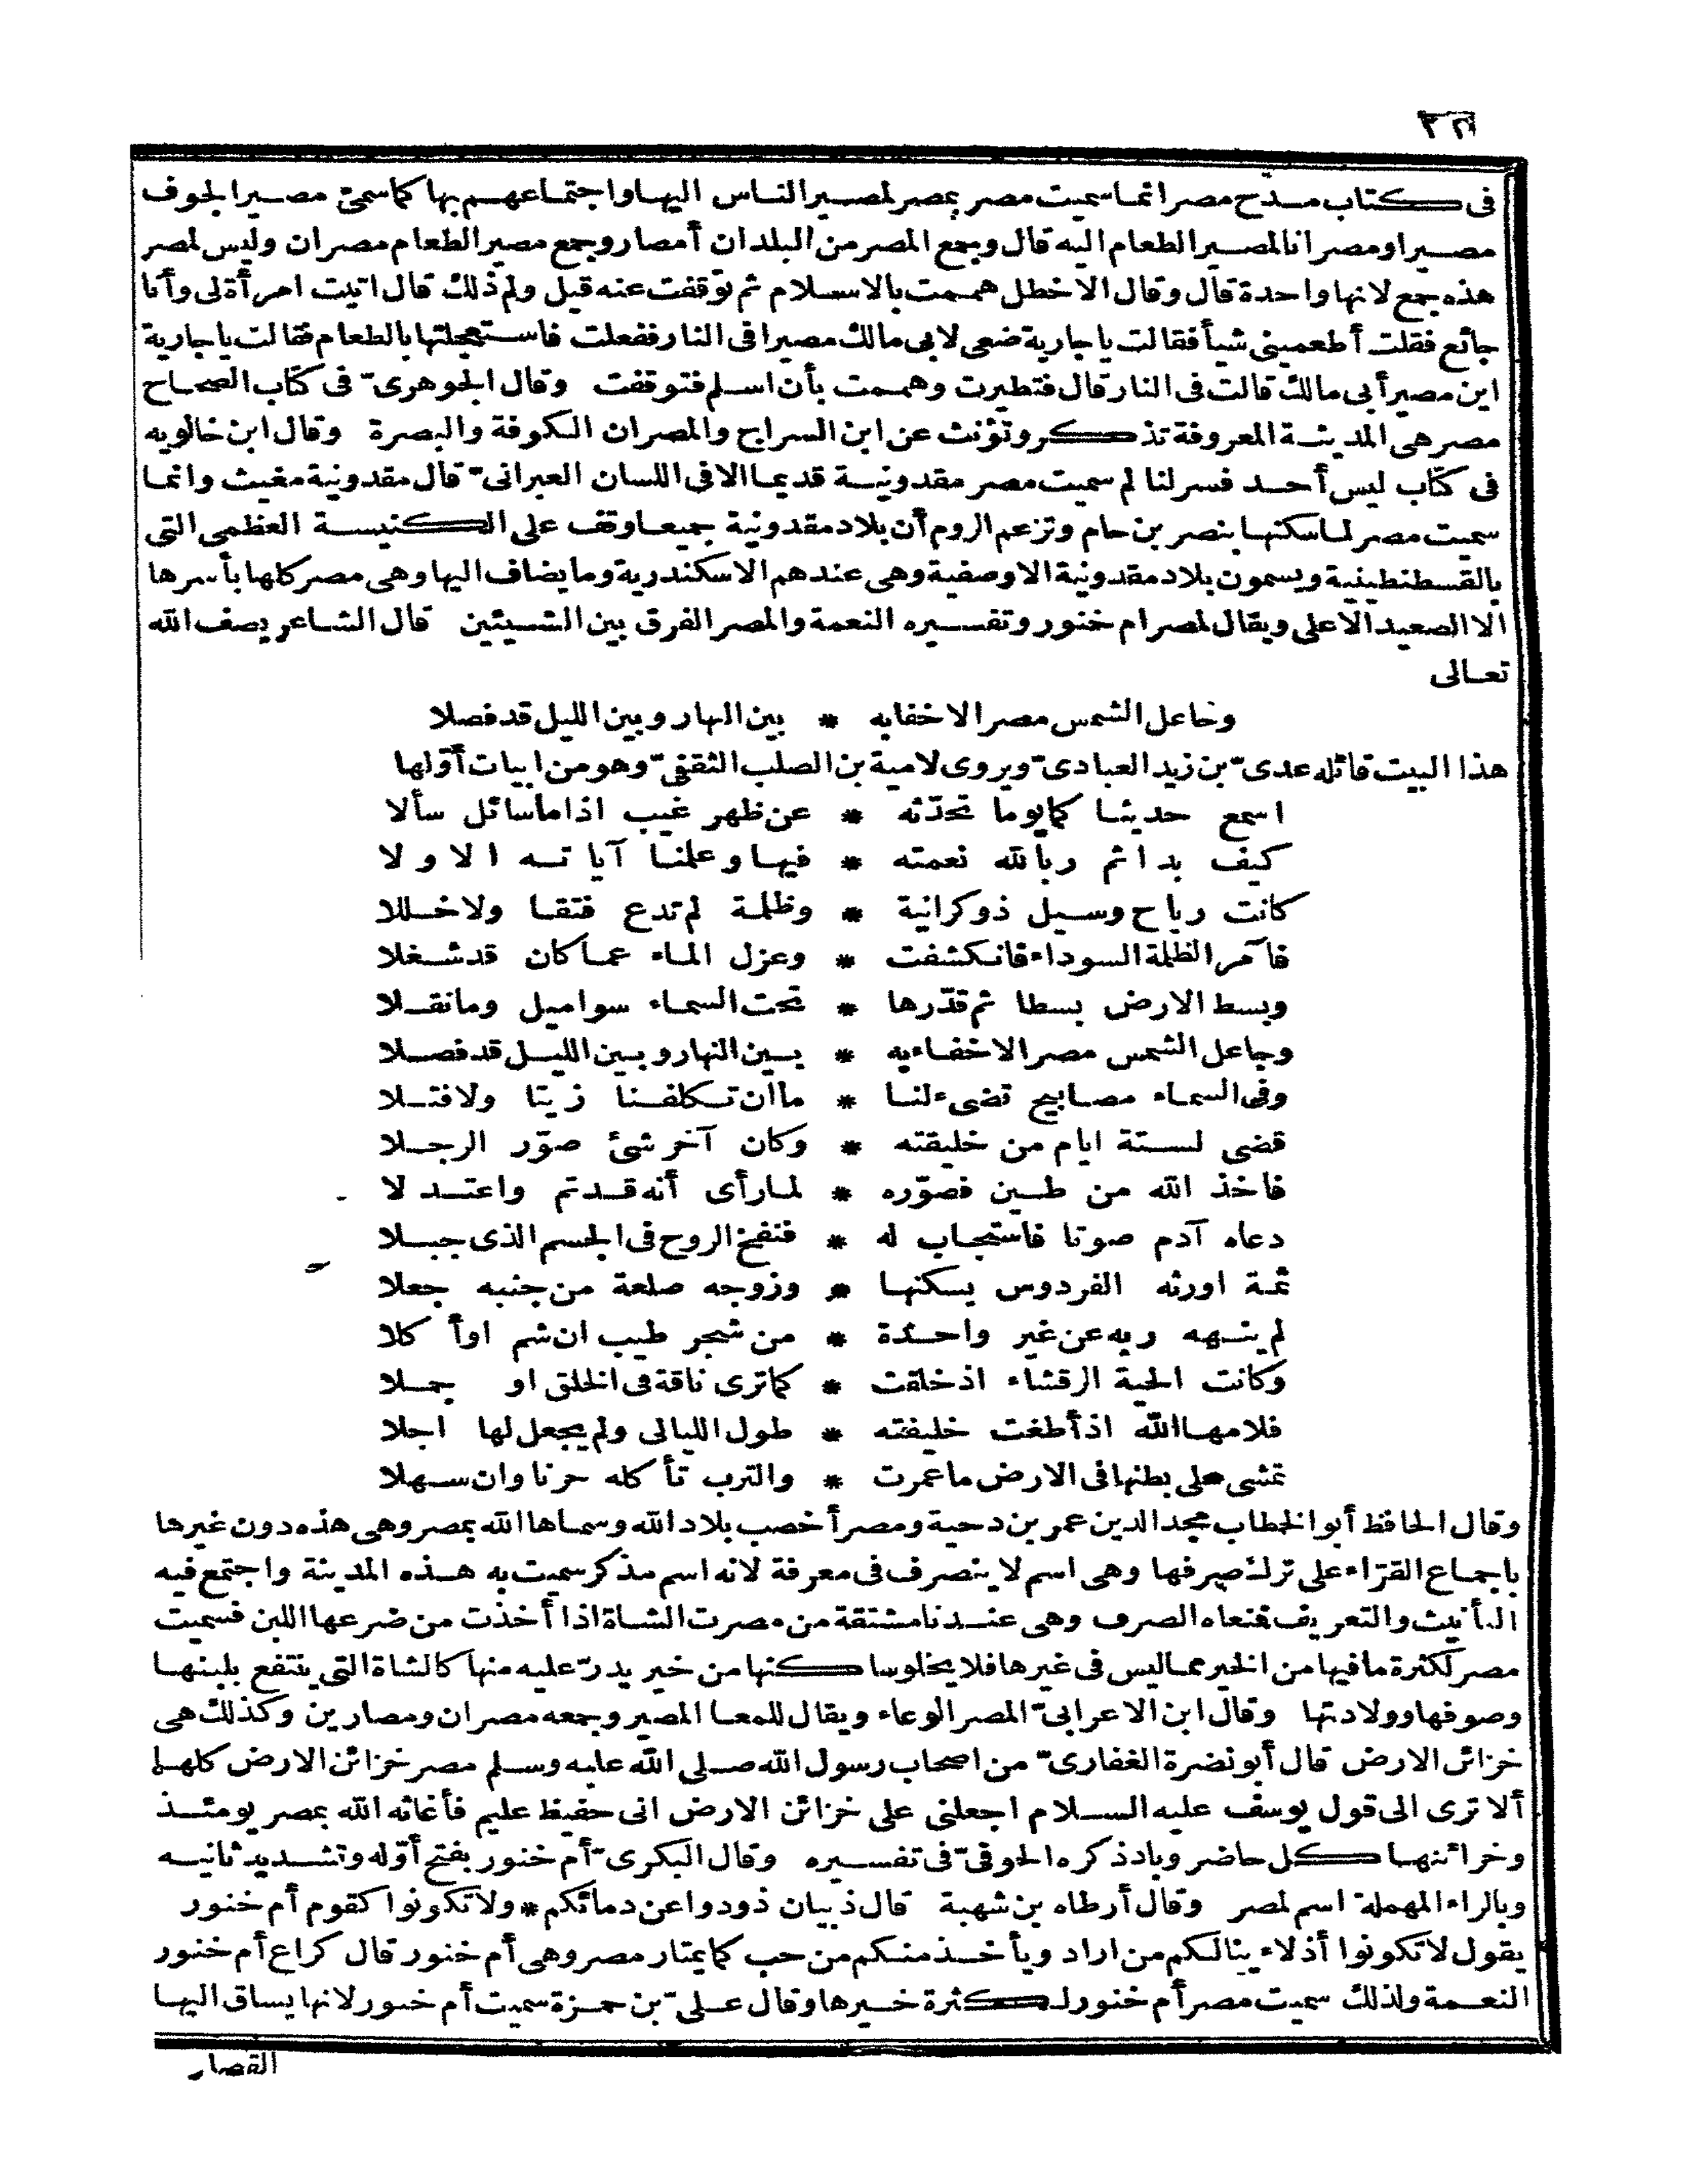 فى كتاب مدح مصر انما سميت مصر بمصر لمصير الناس اليها واجتماعهم بها كما سمى مصير الجوف
مصيرا ومصرانا لمصير الطعام اليه قال وجمع المصر من البلدان أمصار وجمع مصير الطعام مصران وليس لمصر
هذه جمع لانها واحدة قال وقال الاخطل هممت بالاسلام ثم توقفت عنه قيل ولم ذلك قال اتيت امرأة لى وأنا
جائع فقلت أطعمينى شيأ فقالت يا جارية ضعى لابى مالك مصيرا فى النار ففعلت فاستعجلتها بالطعام فقالت يا جارية
اين مصير أبى مالك قالت فى النار قال فتطيرت وهممت بأن اسلم فتوقفت وقال الجوهرىّ فى كتاب الصحاح
مصر هى المدينة المعروفة تذكر وتؤنث عن ابن السراج والمصران الكوفة والبصرة وقال ابن خالويه
فى كتاب ليس أحد فسر لنا لم سميت مصر مقدونية قديما الا فى اللسان العبرانىّ قال مقدونية مغيث وانما
سميت مصر لما سكنها بنصر بن حام وتزعم الروم أن بلاد مقدونية جميعا وقف على الكنيسة العظمى التى
بالقسطنطينية ويسمون بلاد مقدونية الاوصفية وهى عندهم الاسكندرية وما يضاف اليها وهى مصر كلها بأسرها
الا الصعيد الاعلى ويقال لمصر ام خنور وتفسيره النعمة والمصر الفرق بين الشيئين قال الشاعر يصف الله
تعالى
وجاعل الشمس مصرا لا خفا به * بين النهار وبين الليل قد فصلا
هذا البيت قائله عدىّ بن زيد العبادىّ ويروى لامية بن الصلب الثقفىّ وهو من ابيات أوّلها
اسمع حديثا كما يوما تحدّثه * عن ظهر غيب اذا ما سائل سألا
كيف بدا ثم ربا لله نعمته * فيها وعلمنا آياته الاولا
كانت رياح وسيل ذو كرانية * وظلمة لم تدع فتقا ولا خللا
فآمر الظلمة السوداء فانكشفت * وعزل الماء عما كان قد شغلا
وبسط الارض بسطا ثم قدّرها * تحت السماء سوا ميل وما نقلا
وجاعل الشمس مصرا لا خفاء به * بين النهار وبين الليل قد فصلا
وفى السماء مصابيح تضىء لنا * ما ان تكلفنا زيتا ولا فتلا
قضى لستة ايام من خليقته * وكان آخر شئ صوّر الرجلا
فاخذ الله من طين فصوّره * لما رأى أنه قد تم واعتدلا
دعاه آدم صوتا فاستجاب له * فنفخ الروح فى الجسم الذى جبلا
ثمة اورثه الفردوس يسكنها * وزوجه صلعة من جنبه جعلا
لم ينهه ربه عن غير واحدة * من شجر طيب ان شم او أكلا
وكانت الحية الرقشاء اذ خلقت * كما ترى ناقة فى الخلق او جملا
فلامها الله اذ أطغت خليفته * طول الليالى ولم يجعل لها اجلا
تمشى على بطنها فى الارض ما عمرت * والترب تأكله حزنا وان سهلا
وقال الحافظ أبو الخطاب مجد الدين عمر بن دحية ومصر أخصب بلاد الله وسماها الله بمصر وهى هذه دون غيرها
باجماع القرّاء على ترك صرفها وهى اسم لا ينصرف فى معرفة لانه اسم مذكر سميت به هذه المدينة واجتمع فيه
التأنيث والتعريف فمنعاه الصرف وهى عندنا مشتقة من مصرت الشاة اذا أخذت من ضرعها اللبن فسميت
مصر لكثرة ما فيها من الخير مما ليس فى غيرها فلا يخلو ساكنها من خير يدرّ عليه منها كالشاة التى ينتفع بلبنها
وصوفها وولادتها وقال ابن الاعرابىّ المصر الوعاء ويقال للمعا المصير وجمعه مصران ومصارين وكذلك هى
خزائن الارض قال أبو نضرة الغفارىّ من اصحاب رسول الله صلى الله عليه وسلم مصر خزائن الارض كلها
ألا ترى الى قول يوسف عليه السلام اجعلنى على خزائن الارض انى حفيظ عليم فأغاثه الله بمصر يومئذ
وخزائنها كل حاضر وباد ذكره الحوفىّ فى تفسيره وقال البكرىّ أم خنور بفتح أوّله وتشديد ثانيه
وبالراء المهملة اسم لمصر وقال أرطاه بن شهبة قال ذبيان ذودوا عن دمائكم * ولا تكونوا كقوم أم خنور
يقول لا تكونوا أذلاء ينالكم من اراد ويأخذ منكم من حب كما يمتار مصر وهى أم خنور قال كراع أم خنور
النعمة ولذلك سميت مصر أم خنور لكثرة خيرها وقال علىّ بن حمزة سميت أم خنور لانها يساق اليها
القصار